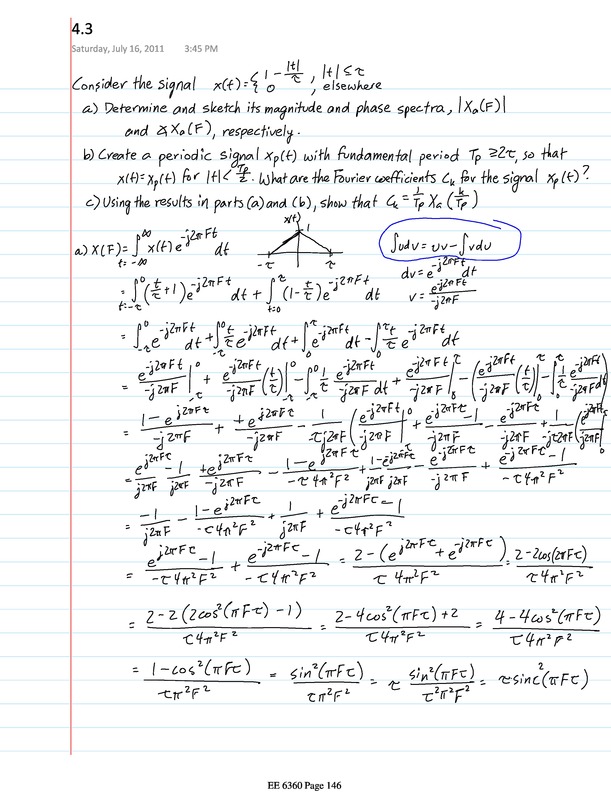 4.3
Saturday, July 16, 2011 3:45 PM
Consider the signal x(t) = { 1 - |t|/τ , |t| ≤ τ
0 , elsewhere
a) Determine and sketch its magnitude and phase spectra, |Xa(F)|
and ∡Xa(F), respectively.
b) Create a periodic signal xp(t) with fundamental period Tp ≥ 2τ, so that
x(t) = xp(t) for |t| < Tp/2. What are the Fourier coefficients Ck for the signal xp(t)?
c) Using the results in parts (a) and (b), show that Ck = 1/Tp Xa(k/Tp)
x(t)
1
-τ τ
a) X(F) = ∫_{t=-∞}^{∞} x(t) e^{-j2πFt} dt
∫udv = uv - ∫vdu
dv = e^{-j2πFt} dt
v = e^{-j2πFt}/-j2πF
= ∫_{t=-τ}^{0} (t/τ + 1) e^{-j2πFt} dt + ∫_{t=0}^{τ} (1 - t/τ) e^{-j2πFt} dt
= ∫_{-τ}^{0} e^{-j2πFt} dt + ∫_{-τ}^{0} t/τ e^{-j2πFt} dt + ∫_{0}^{τ} e^{-j2πFt} dt - ∫_{0}^{τ} t/τ e^{-j2πFt} dt
= e^{-j2πFt}/-j2πF |_{-τ}^{0} + e^{-j2πFt}/-j2πF (t/τ) |_{-τ}^{0} - ∫_{-τ}^{0} 1/τ e^{-j2πFt}/-j2πF dt + e^{-j2πFt}/-j2πF |_{0}^{τ} - (e^{-j2πFt}/-j2πF (t/τ) |_{0}^{τ} - ∫_{0}^{τ} 1/τ e^{-j2πFt}/-j2πF dt)
= 1 - e^{j2πFτ}/-j2πF + + e^{j2πFτ}/-j2πF - 1/τj2πF (e^{-j2πFt}/-j2πF |_{-τ}^{0} + e^{-j2πFτ} - 1/-j2πF - e^{-j2πFτ}/-j2πF + 1/-jτ2πF (e^{-j2πFt}/-j2πF |_{0}^{τ}
= e^{j2πFτ}/j2πF - 1/j2πF + e^{j2πFτ}/-j2πF - 1 - e^{j2πFτ}/-τ4π²F² + 1/j2πF - e^{-j2πFτ}/j2πF - e^{-j2πFτ}/-j2πF + e^{-j2πFτ} - 1/-τ4π²F²
= -1/j2πF - 1 - e^{j2πFτ}/-τ4π²F² + 1/j2πF + e^{-j2πFτ} - 1/-τ4π²F²
= e^{j2πFτ} - 1/-τ4π²F² + e^{-j2πFτ} - 1/-τ4π²F² = 2 - (e^{j2πFτ} + e^{-j2πFτ})/τ4π²F² = 2 - 2cos(2πFτ)/τ4π²F²
= 2 - 2(2cos²(πFτ) - 1)/τ4π²F² = 2 - 4cos²(πFτ) + 2/τ4π²F² = 4 - 4cos²(πFτ)/τ4π²F²
= 1 - cos²(πFτ)/τπ²F² = sin²(πFτ)/τπ²F² = τ sin²(πFτ)/τ²π²F² = τ sinc²(πFτ)
EE 6360 Page 146